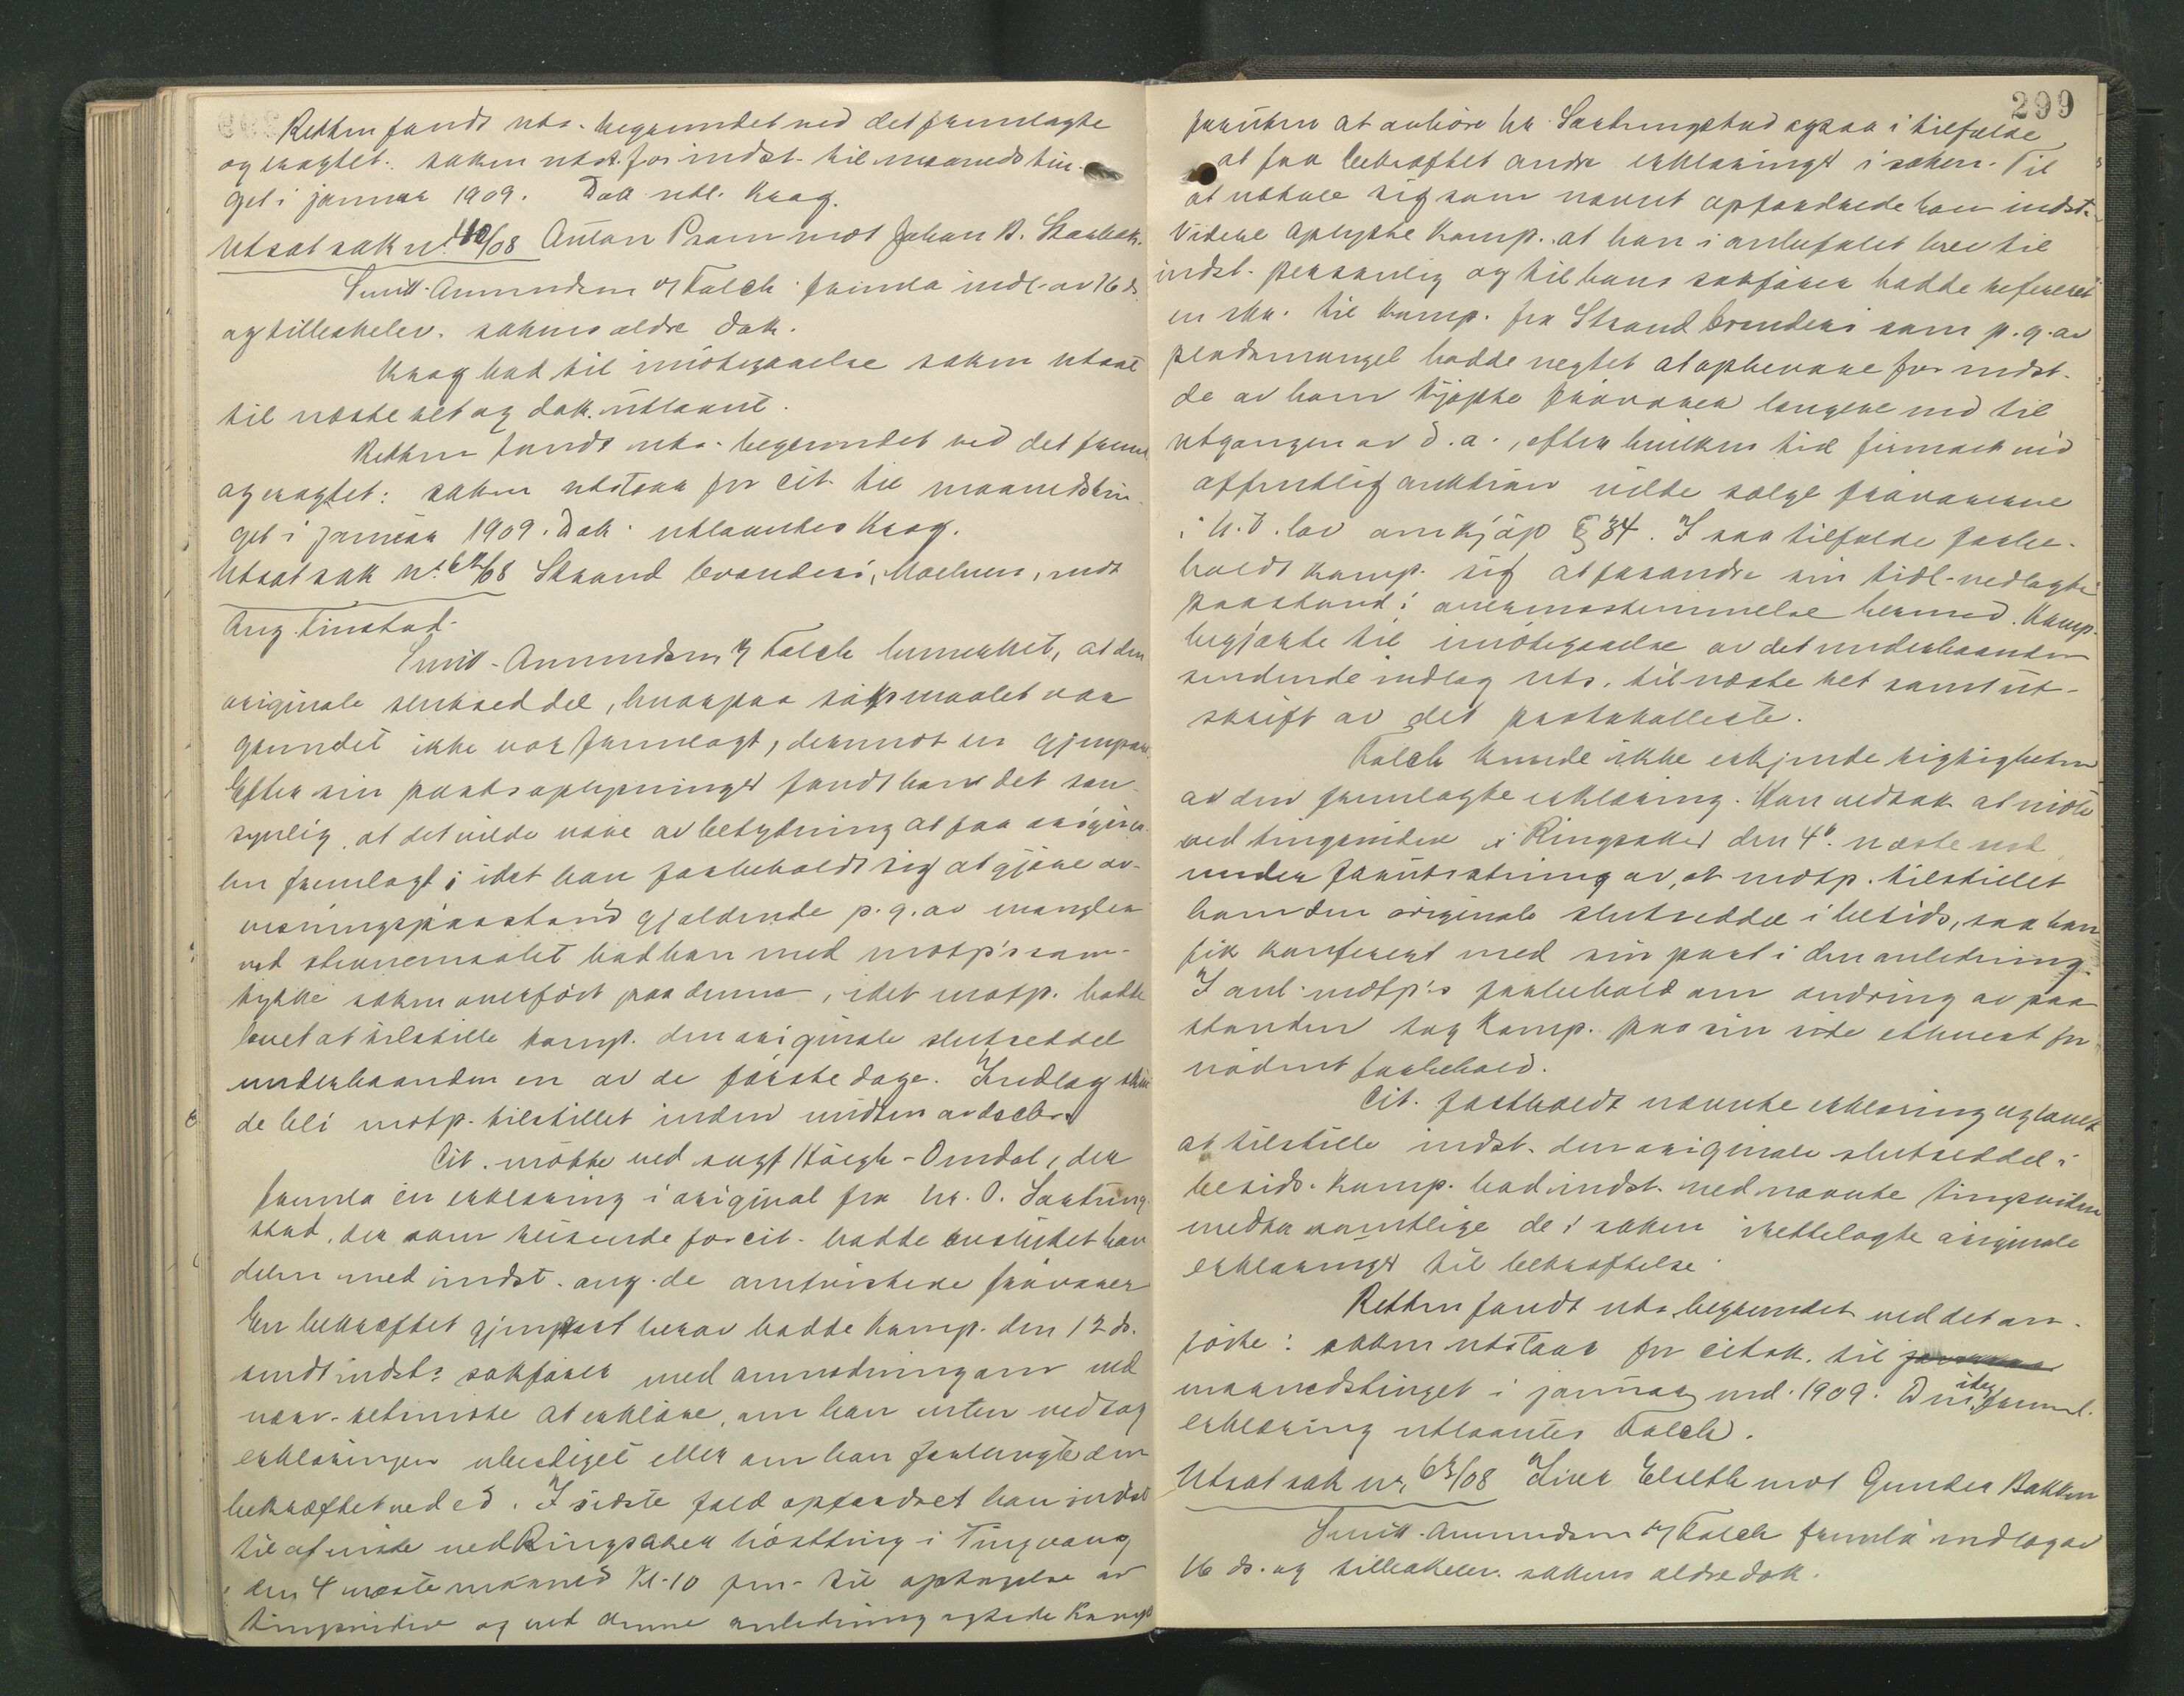 Retten fandt uts. begrundet ved det fremlagte
og eragtet: saken utst. for indst. til maanedstin-
get i januar 1909. Dok. utl. Krag.
Utsat sak nr. 110/08 Anton Pram mot Johan B. Skarbak.
Smitt-Amundsen v/ Falch fremla indl. av 16 ds.
og tilleskelev. sakens ældre dok.
Krag bad til imøtegaaelse saken utsat
til næste ret og dok. utlaant.
Retten fandt uts. begrundet ved det freml.
og eragtet: saken utstaar for cit. til maanedstin-
get i januar 1909. Dok. utlaantes Krag.
Utsat sak nr. 62/08 Strand Brænderi, Moelven, mot
Aug. Tinstad.
Smitt-Amundsen v/ Falch bemerket, at den
originale slutseddel, hvorpaa søksmaalet var
grundet ikke var fremlagt, derimot en gjenpart.
Efter sin parts oplysninger fandt han det san-
synlig, at det vilde være av betydning at faa origina-
len fremlagt; idet han forbeholdt sig at gjøre av-
visningspaastand gjældende p.g.av mangler
ved stevnemaalet bad han med motp's sam-
tykke saken overført paa denne, idet motp. hadde
lovet at tilstille komp. den originale slutseddel
underhaanden en av de første dage. Indlæg skul-
de bli motp. tilstillet inden midten av decbr.
Cit. møtte ved sagf Høegh-Omdal, der
fremla en erklæring i original fra hr. O. Sartung-
stad, der som reisende for cit. hadde avsluttet han-
delen med indst. ang. de omtvistede frøvarer
En bekræftet gjenpart herav hadde komp. den 12 ds.
sendt indst's sakfører med anmodning om ved
nærv. retmøte at erklære, om han enten vedtog
erklæringen ubeediget eller om han forlangte den
bekræftet ved ed. I sidste fald opfordret han indst
til at møte ved Ringsaker høstting i Tingvang
den 4 næste maaned Kl. 10 fm. til optagelse av
tingsvidne og ved denne anledning agtede komp
foruten at avhøre hr. Sartungstad ogsaa i tilfælde
at faa bekræftet andre erklæringer i saken. Til
at uttale sig som nævnt opfordrede han indst.
Videre oplyste komp. at han i anbefalet brev til
indst. personlig og til hans sakfører hadde refereret
en skr. til komp. fra Strand Brænderi som p.g.av
pladsmangel hadde negtet at opbevare for indst.
de av ham kjøpte frøvarer længere end til
utgangen av d.a., efter hvilken tid firmaet ved
offentlig auktion vilde sælge frøvarerne
i h.t. lov om kjøp § 34. I saa tilfælde forbe-
holdt komp. sig at forandre sin tidl. nedlagte
paastand i overensstemmelse hermed. Komp.
begjærte til imøtegaaelse av det underhaanden
sendende indlæg uts. til næste ret samt ut-
skrift av det protokollerte.
Falch kunde ikke erkjende rigtigheten
av den fremlagte erklæring. Han vedtok at møte
ved tingsvidne i Ringsaker den 4de næste md
under forutsætning av, at motp. tilstillet
ham den originale slutseddel i betids, saa han
fik konferert med sin part i den anledning.
I anl. motp's forbehold om ændring av paa-
standen tog komp. paa sin side ethvert for-
nødent forbehold.
Cit. fastholdt nævnte erklæring og lovet
at tilstille indst. den originale slutseddel i
betids. Komp. bad indst. ved nævnte tingsvidne
medta samtlige de i saken irettelagte originale
erklæringer til bekræftelse.
Retten fandt uts. begrundet ved det an-
førte: saken utstaar for citsk. til
maanedstinget i januar md. 1909. Den idag freml.
erklæring utlaantes Falch.
Utsat sak nr. 63/08 Iver Elseth mot Gunder Bakken
Smitt-Amundsen v/ Falch fremla indlæg av
16 ds. og tilleskelev. sakens ældre dok.
299